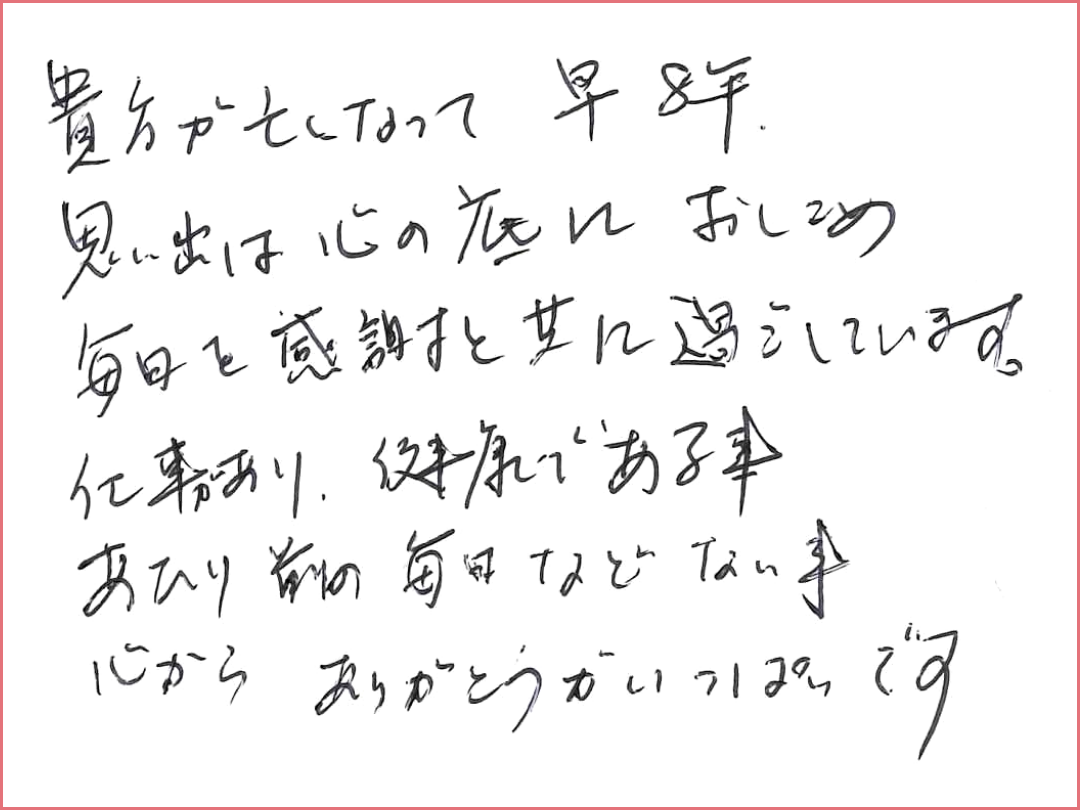 貴方が亡くなって 早 8年.
思い出は 心の底に おしこめ
毎日を感謝すと共に過ごしています。
仕事があり. 健康である事
あたり前の毎日などない事
心から ありがとうがいっぱいです